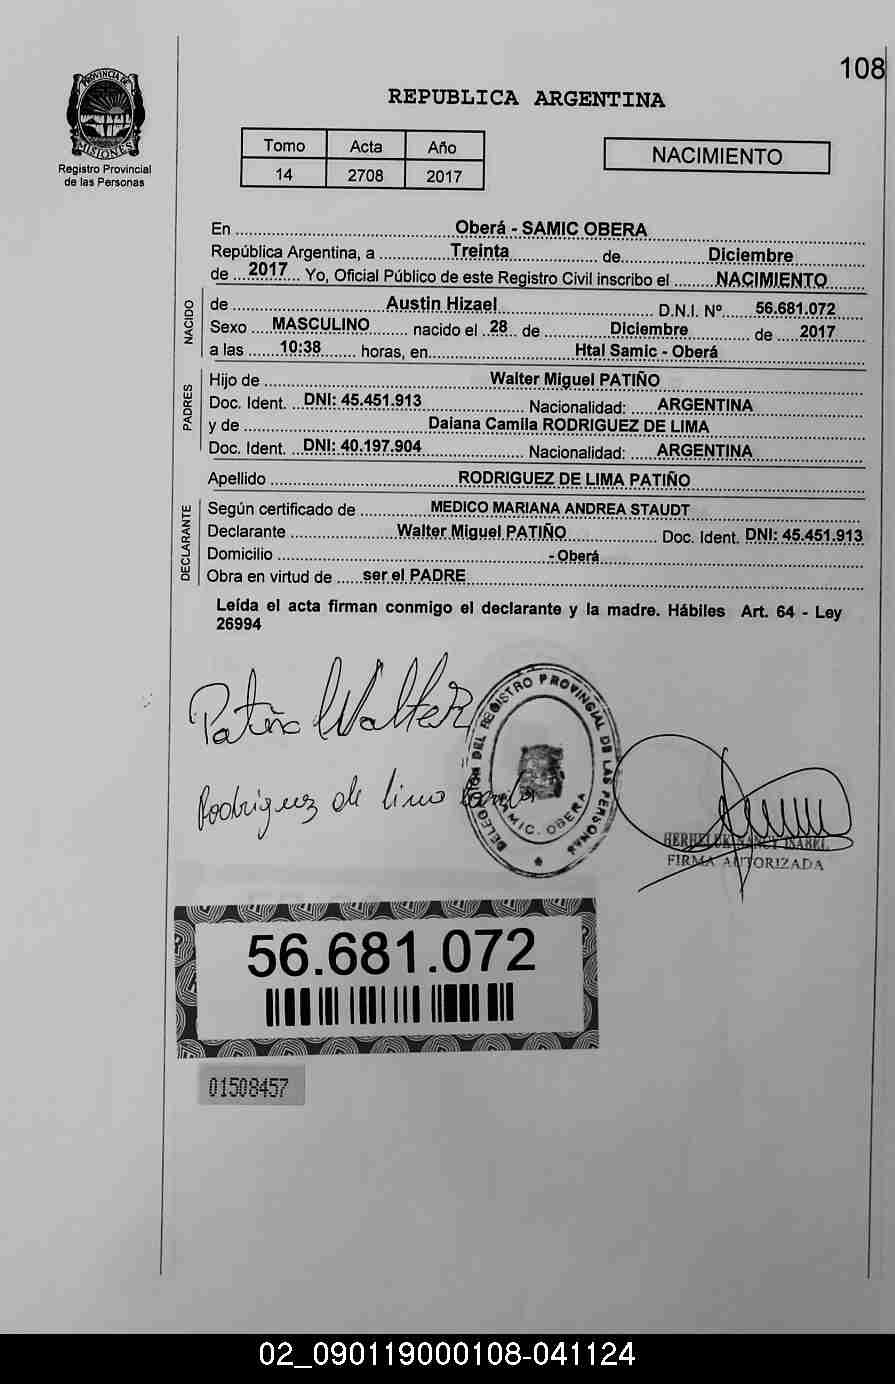 108
PROVINCIA DE
MISIONES
Registro Provincial
de las Personas
REPUBLICA ARGENTINA
Tomo Acta Año
14 2708 2017
NACIMIENTO
En Oberá - SAMIC OBERA
República Argentina, a Treinta de Diciembre
de 2017 Yo, Oficial Público de este Registro Civil inscribo el NACIMIENTO
NACIDO
de Austin Hizael D.N.I. Nº 56.681.072
Sexo MASCULINO nacido el 28 de Diciembre de 2017
a las 10:38 horas, en Htal Samic - Oberá
PADRES
Hijo de Walter Miguel PATIÑO
Doc. Ident. DNI: 45.451.913 Nacionalidad: ARGENTINA
y de Daiana Camila RODRIGUEZ DE LIMA
Doc. Ident. DNI: 40.197.904 Nacionalidad: ARGENTINA
Apellido RODRIGUEZ DE LIMA PATIÑO
DECLARANTE
Según certificado de MEDICO MARIANA ANDREA STAUDT
Declarante Walter Miguel PATIÑO Doc. Ident. DNI: 45.451.913
Domicilio - Oberá
Obra en virtud de ser el PADRE
Leída el acta firman conmigo el declarante y la madre. Hábiles Art. 64 - Ley
26994
Patiño Walter
Rodriguez de lima
DEL REGISTRO PROVINCIAL DE LAS PERSONAS
SAMIC. OBERA
NANCY ISABEL
FIRMA AUTORIZADA
56.681.072
01508457
02_090119000108-041124